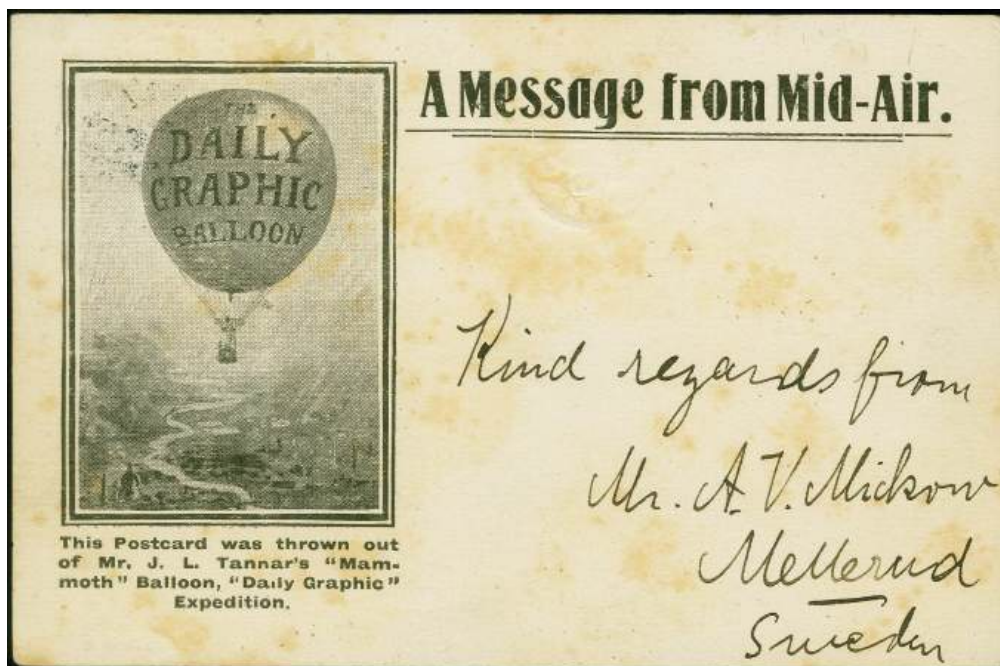 THE
DAILY
GRAPHIC
BALLOON
This Postcard was thrown out
of Mr. J. L. Tannar's "Mam-
moth" Balloon, "Daily Graphic"
Expedition.
A Message from Mid-Air.
Kind regards from
Mr. A. V. Mickow
Mellerud
Sweden